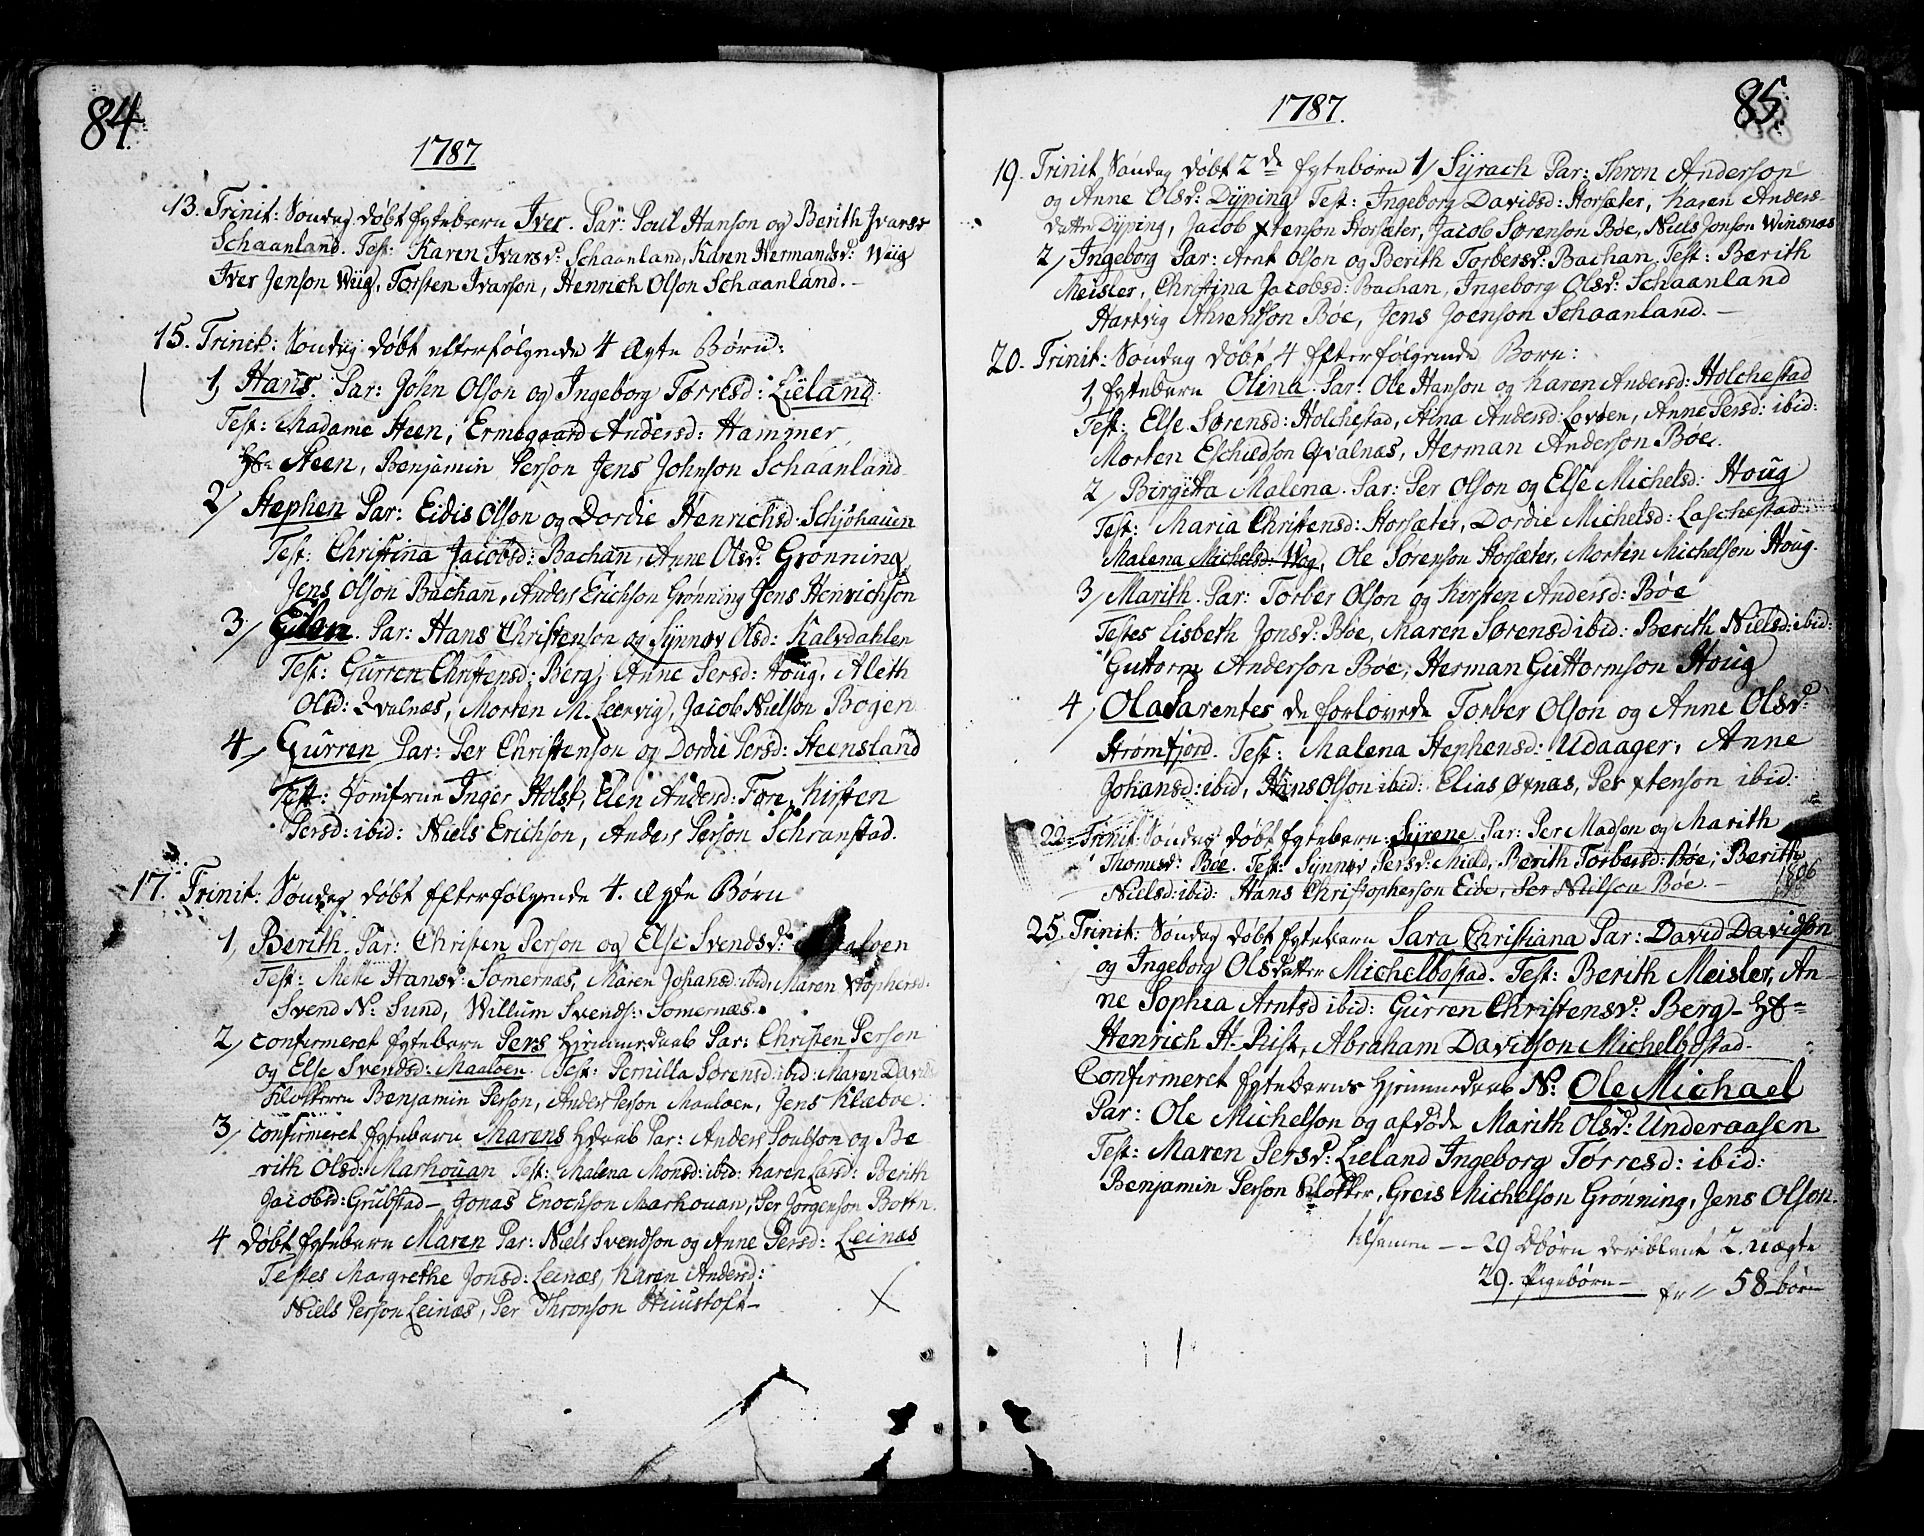 84.
1787
13. Trinit: Søndag døbt Egtebarn Iver. Par: Poul Hanson og Berith Ivarsd
Schaanland. Test: Karen Ivarsd: Schaanland, Karen Hermandsd: Wiig
Iver Jenson Wiig, Torsten Ivarson, Henrich Olson Schaanland.
15. Trinit: Søndag døbt efterfølgende 4 Ægte Børn:
1, Hans. Par: John Olson og Ingeborg Torresd: Lieland
Test: Madame Steen, Ermegaard Andersd: Hammer
Hr Steen, Benjamin Person Jens Johnson Schaanland
2/ Stephen Par: Eidis Olson og Dordie Henrichsd: Schjøhauen
Test: Christina Jacobsd: Bachan, Anne Olsd: Grønning
Jens Olson Bachan, Anders Erichson Grønning Jens Henrichson
3/ Elen. Par: Hans Christenson og Synnøv Olsd: Kalvdahlen
Test: Gurren Christensd: Berg, Anne Persd: Houg, Aleth
Olsd: Qvalnæs, Morten M. Leervig, Jacob Nielson Bogen
4/ Gurren Par: Per Christenson og Dordie Persd: Steensland
Test: Jomfrue Inger Holst, Elen Andersd: Fore, Kirsten
Persd: ibid: Niels Erichson, Anders Person Schranstad.
17. Trinit: Søndag døbt Efterfølgende 4. Ægte Børn
1, Berith. Par: Christen Person og Else Svendsd: Maaloen
Test: Mette Hansd: Somernæs, Karen Johansd: ibid: Maren Xtophersd.
Svend N: Sund, Willum Svends: Somernæs.
2/ confirmeret Egtebarn Pers Hjemmedaab Par: Christen Person
og Else Svendsd: Maaloen. Test: Pernilla Sørensd: ibid: Maren David
Klokkeren Benjamin Person, Anders Person Maaloen, Jens Klæboe.
3/ confirmeret Egtebarn Marens Hdaab Par: Anders Poulson og Be
rith Olsd: Markouan Test: Malena Monsd: ibid: Karen Larsd: Berith
Jacobsd: Grubstad - Jonas Enochson Markouan, Per Jørgenson Botten.
4 døbt Egtebarn Maren Par: Niels Svendson og Anne Persd: Leinæs
Testes Margrethe Jonsd: Leinæs, Karen Andersd:
Niels Person Leinæs, Per Thronson Hiiustoft
85.
1787.
19. Trinit Søndag døbt 2de Egtebørn 1/ Syrach Par: Thron Anderson
og Anne Olsd: Dyping Test: Ingeborg Davidsd: Storsæter, Karen Anders-
datter Dyping, Jacob Xtenson Storsæter, Jacob Sørenson Bøe, Niels Jonson Winsnæs
2/ Ingeborg Par: Arnt Olson og Berith Torbersd: Bachan. Test: Berith
Meisler, Christina Jacobsd: Bachan, Ingeborg Olsd: Schaanland
Hartvig Ahrendson Bøe, Jens Joenson Schaanland.
20. Trinit: Søndag døbt 4 Efterfølgende Børn:
1, Egtebarn Olina. Par: Ole Hanson og Karen Andersd: Holchestad
Test: Else Sørensd: Holchestad, Alna Andersd: Lovøen, Anne Persd: ibid:
Morten Eschildson Qvalnæs, Herman Anderson Bøe.
2/ Birgitta Malena. Par: Per Olson og Else Michelsd: Houg
Test: Maria Christensd: Storsæter, Dordie Michelsd: Laschestad
Malena Michelsd: Wog, Ole Sørenson Storsæter, Morten Michelson Houg.
3/ Marith. Par: Torber Olson og Kirsten Andersd: Bøe
Testes Lisbeth Jonsd: Bøe, Maren Sørensd ibid: Berith Nielsd: ibid:
Guttorm Anderson Bøe, Herman Guttormson Houg
4/ Ola Parentes de forlovede Torber Olson og Anne Olsd:
Strømfjord. Test: Malena Stephensd: Udaager, Anne
Johansd: ibid, Hans Olson ibid: Elias Øxnæs, Per Xtenson ibid:
22. Trinit: Søndag døbt Egtebarn: Syrene Par: Per Madson og Marith
Thomsd: Bøe. Test: Synnøv Persd: Mild, Berith Torbersd: Bøe, Berith
1806
Nielsd: ibid: Hans Christopherson Eide, Per Nielson Bøe.
25. Trinit: Søndag døbt Egtebarn Sara Christiana Par: David Davidson
og Ingeborg Olsdatter Michelbostad. Test: Berith Meisler, An
ne Sophia Arntsd ibid: Gurren Christensd: Berg - Hr
Henrich H. Rist, Abraham Davidson Michelbostad.
Confirmeret Egtebarns Hjemmedaab N: Ole Michael
Par: Ole Michelson og afdøde Marith Olsd: Underaasen
Test: Maren Persd: Lieland Ingeborg Torresd: ibid:
Benjamin Person Klokker, Greis Michelson Grønning, Jens Olson.
tilsamen - - 29 Dbørn deriblant 2 uægte
29. Pigebørn - er 58 børn